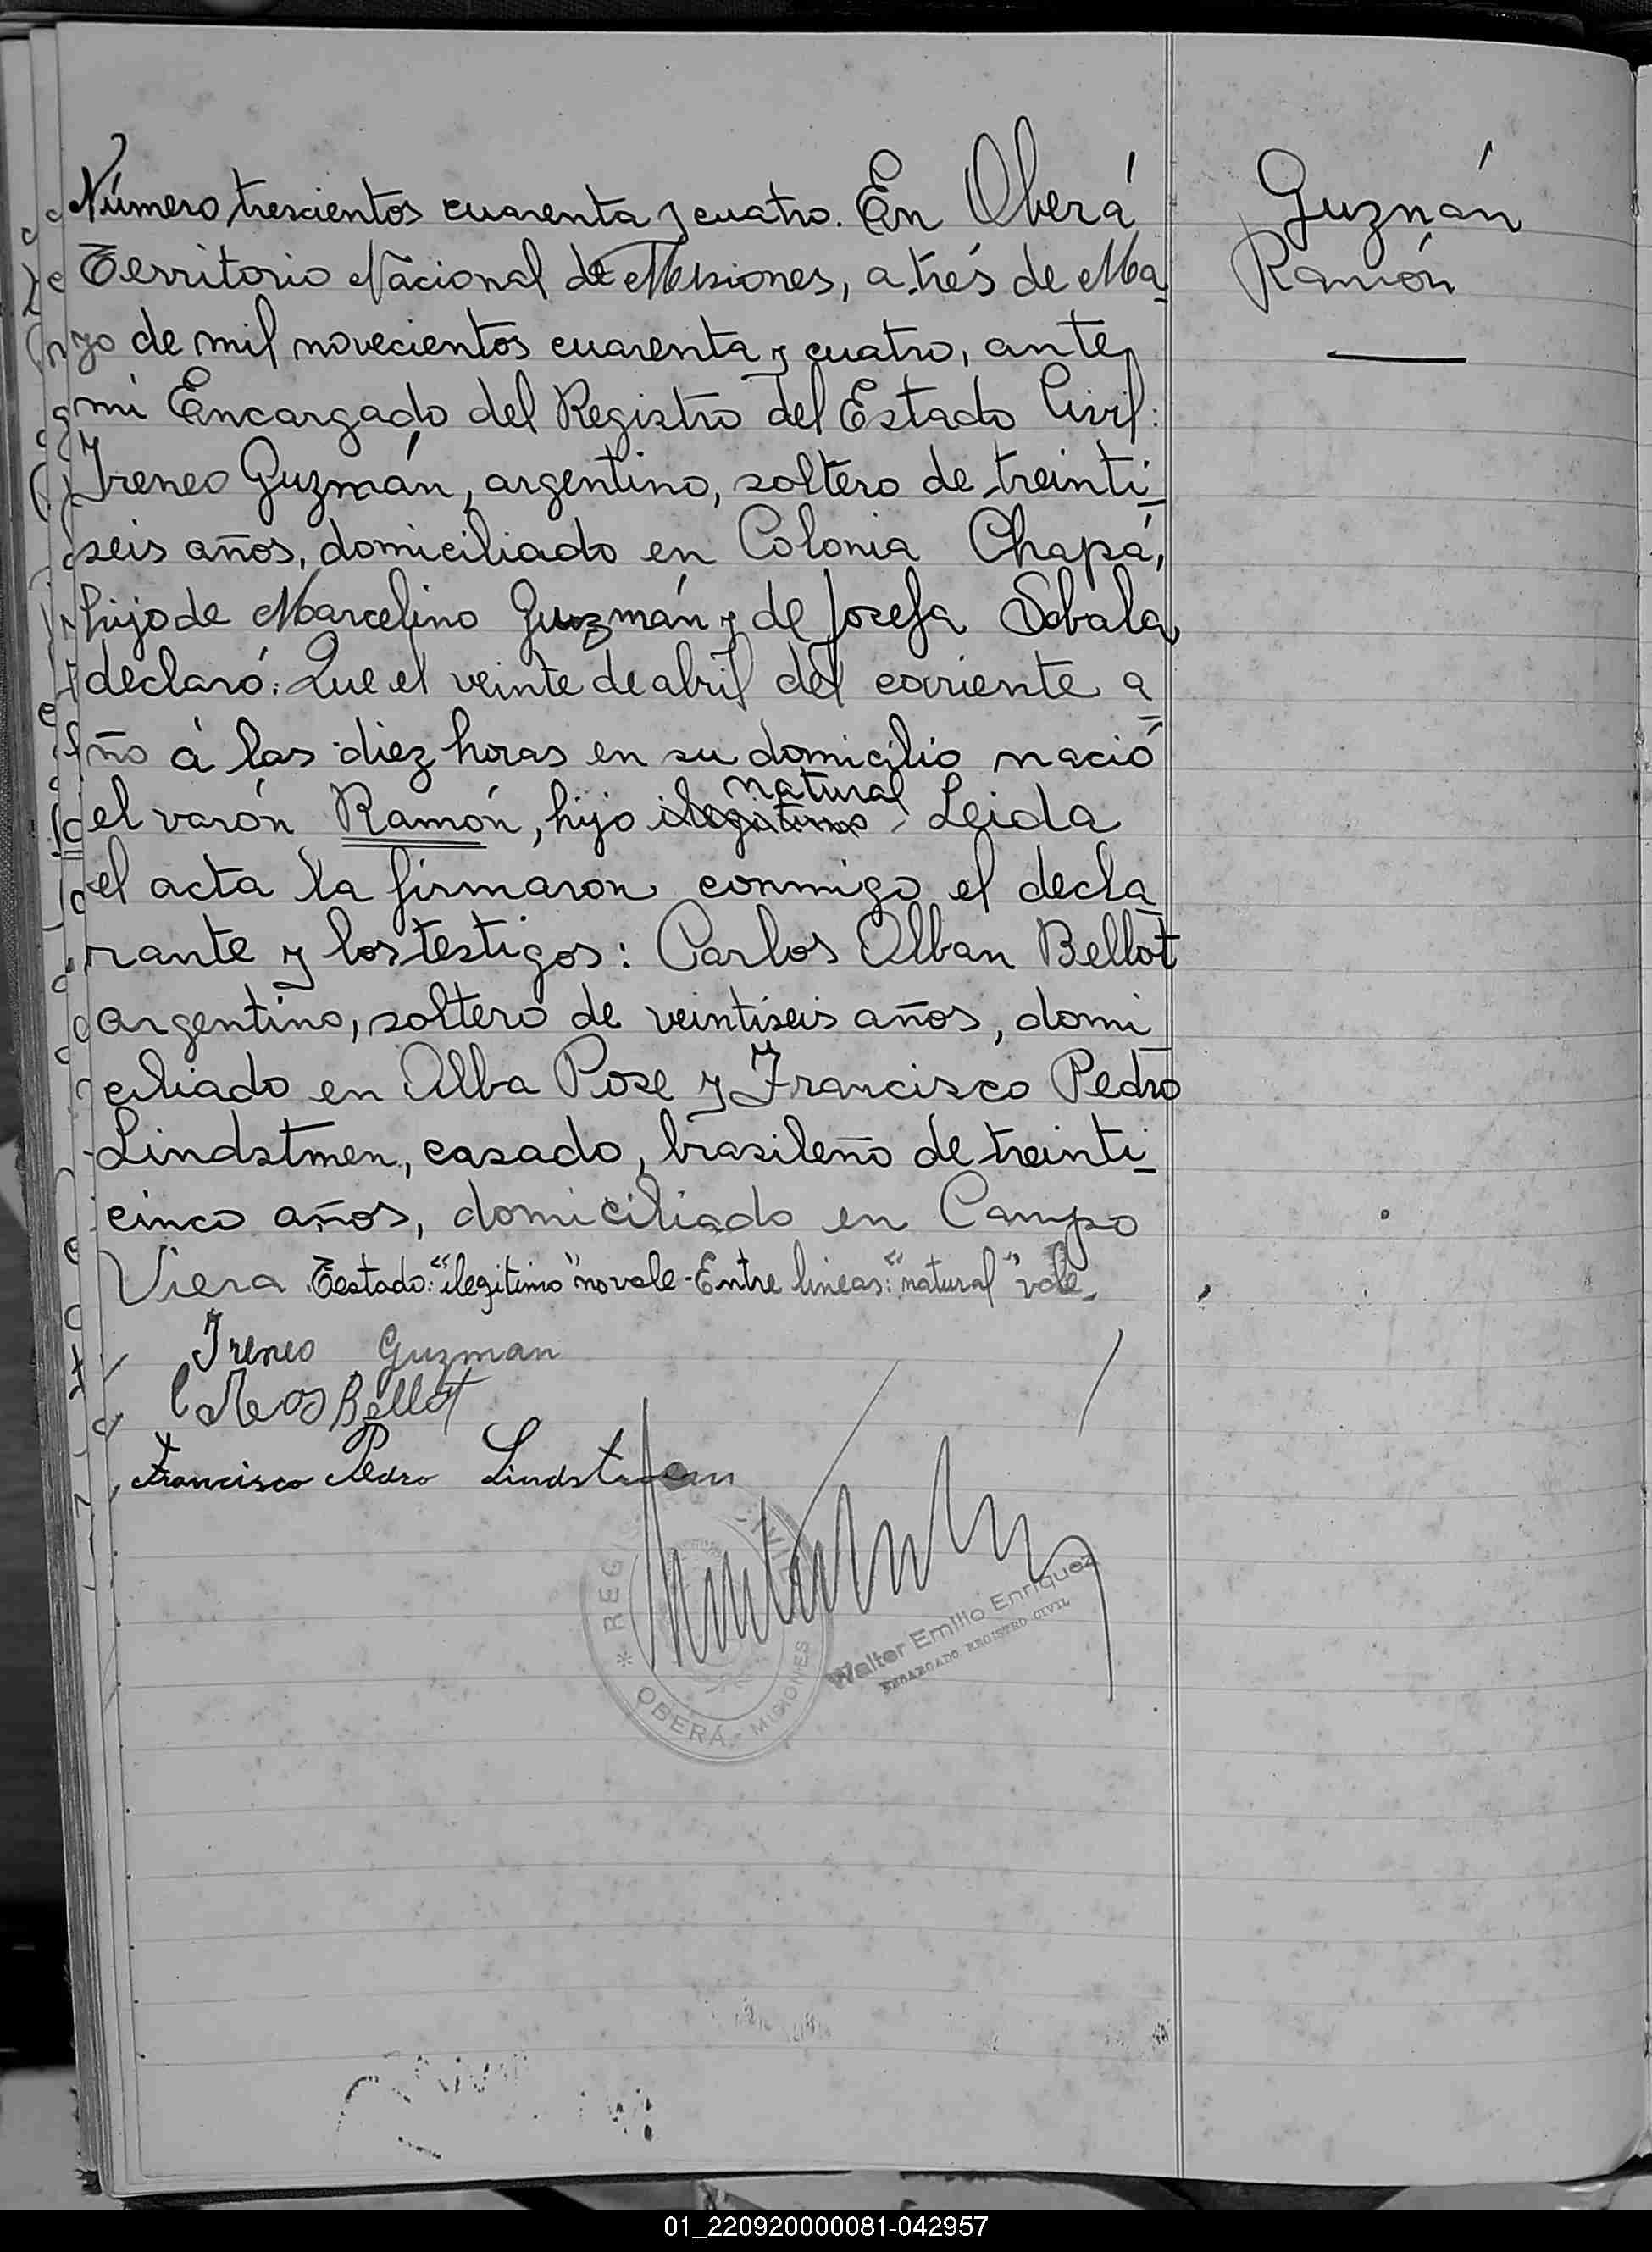 Número trescientos cuarenta y cuatro. En Oberá
Territorio Nacional de Misiones, a tres de Ma-
yo de mil novecientos cuarenta y cuatro, ante
mi Encargado del Registro del Estado Civil:
Ireneo Guzmán, argentino, soltero de treinti-
seis años, domiciliado en Colonia Chapá,
hijo de Marcelino Guzmán y de Josefa Sobala
declaró: Que el veinte de abril del corriente a=
ño á las diez horas en su domicilio nació
natural
el varón Ramón, hijo ilegitimo. Leida
el acta la firmaron conmigo el decla-
rante y los testigos: Carlos Alban Bellot
argentino, soltero de veintiseis años, domi-
ciliado en Alba Pose y Francisco Pedro
Lindstmen, casado, brasileño de treinti-
cinco años, domiciliado en Campo
Viera. Testado: "ilegitimo" no vale - Entre lineas: "natural" vale.
Ireneo Guzman
Carlos Bellot
Francisco Pedro Lindstroem
Guzmán
Ramón
REGISTRO CIVIL
OBERÁ - MISIONES
Walter Emilio Enriquez
ENCARGADO REGISTRO CIVIL
01_220920000081-042957